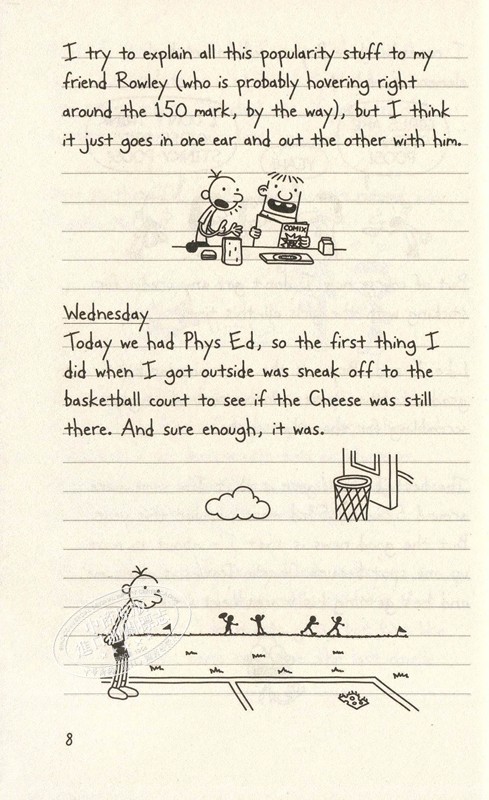 I try to explain all this popularity stuff to my
friend Rowley (who is probably hovering right
around the 150 mark, by the way), but I think
it just goes in one ear and out the other with him.
COMIX
Wednesday
Today we had Phys Ed, so the first thing I
did when I got outside was sneak off to the
basketball court to see if the Cheese was still
there. And sure enough, it was.
8